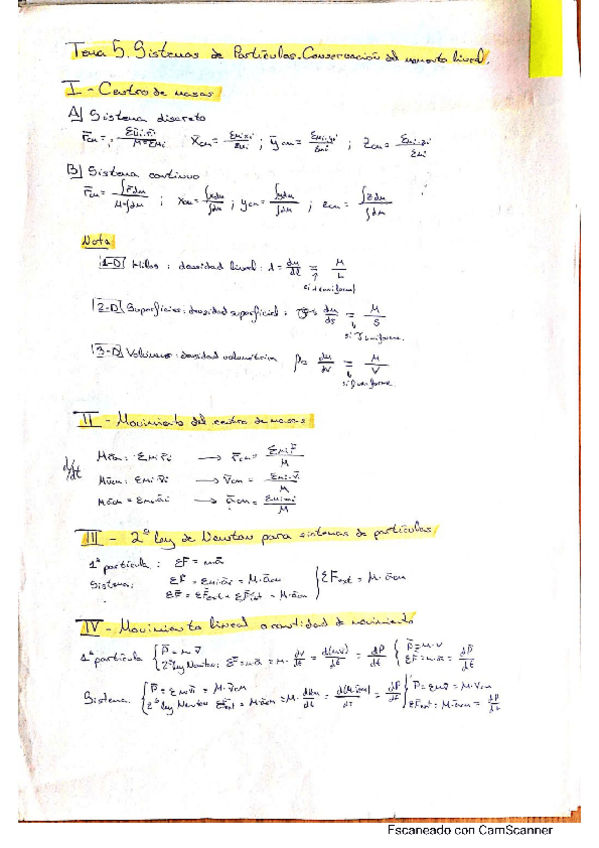 Tema 5. Sistemas de Partículas. Conservación del momento lineal.
I - Centro de masas
A) Sistema discreto
r̄cm = Σmi·r̄i / M=Σmi   x̄cm = Σmi·xi / Σmi ; ȳcm = Σmi·yi / Σmi ; zcm = Σmi·zi / Σmi
B) Sistema continuo
r̄cm = ∫r̄dm / M=∫dm ; xcm = ∫xdm / ∫dm ; ycm = ∫ydm / ∫dm ; zcm = ∫zdm / ∫dm
Nota
1-D Hilos : densidad lineal : λ = dm/dl = M/L
si λ uniforme
2-D Superficies : densidad superficial : σ = dm/ds = M/S
si σ uniforme.
3-D Volúmenes : densidad volumétrica ρ = dm/dv = M/V
si ρ uniforme.
II - Movimiento del centro de masas
M r̄cm = Σmi r̄i → r̄cm = Σmi r̄ / M
d/dt M v̄cm = Σmi·v̄i → v̄cm = Σmi·v̄i / M
M ācm = Σmi āi → ācm = Σmi āi / M
III - 2ª ley de Newton para sistemas de partículas
1ª partícula : ΣF̄ = mā
Sistema: ΣF̄ = Σmi·āi = M·ācm } ΣF̄ext = M·ācm
ΣF̄ = ΣF̄ext + ΣF̄int = M·ācm
IV - Movimiento lineal o cantidad de movimiento
1ª partícula { p̄ = m v̄   { p̄ = m·v
2ª ley Newton: ΣF̄ = mā = m· dv̄/dt = d(mv̄)/dt = dp̄/dt   ΣF̄ = m·ā = dp̄/dt
Sistema. { P̄ = Σmv̄ = M·v̄cm   } P̄ = Σmv̄ = M·vcm
2ª ley Newton ΣF̄ext = M ācm = M· dvcm/dt = d(M·v̄cm)/dt = dP̄/dt   ΣF̄ext = M·ācm = dP̄/dt
Escaneado con CamScanner